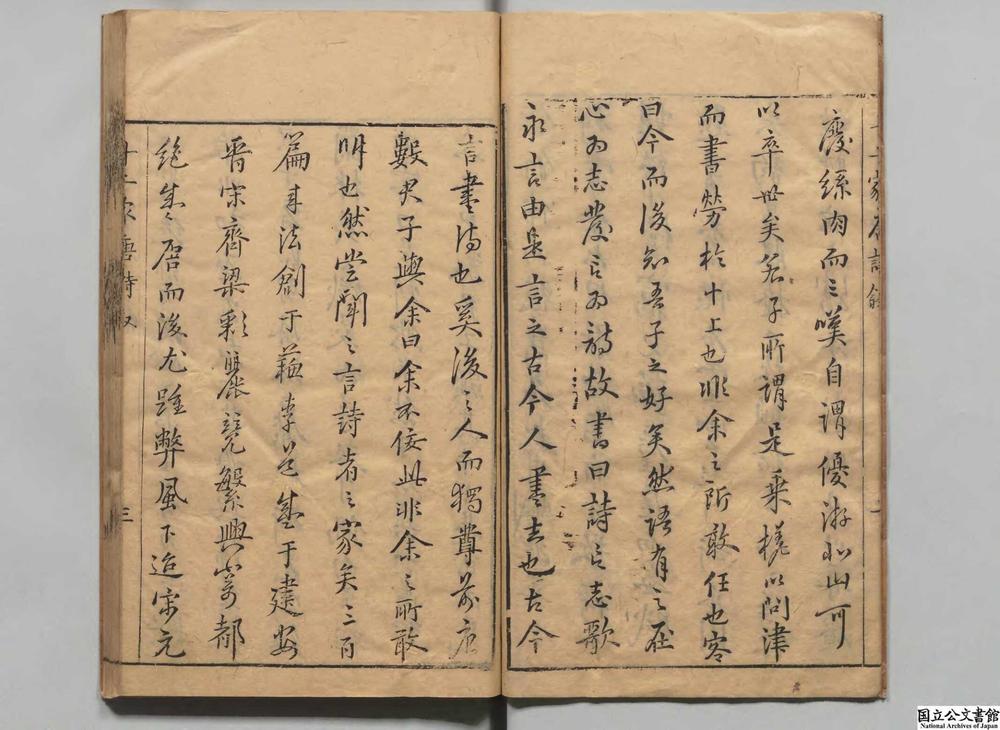 廢絲肉而之嘆自謂優游北山可
以卒世矣君子所謂是乘槎以問津
而書勞於十上也非余之所敢任也客
曰今而後知吾子之好矣然語有之在
心為志發言為詩故書曰詩言志歌
永言由是言之古今人盡言也古今
言盡詩也奚後之人而獨尊前唐
數君子與余曰余不佞此非余之所敢
明也然嘗聞之言詩者之家矣三百
篇來法創于蘇李盛于建安
晉宋齊梁彩麗競繁興寄都
絕唐而後尤踵弊風下迨宋元
十二家唐詩叙
三
国立公文書館
National Archives of Japan